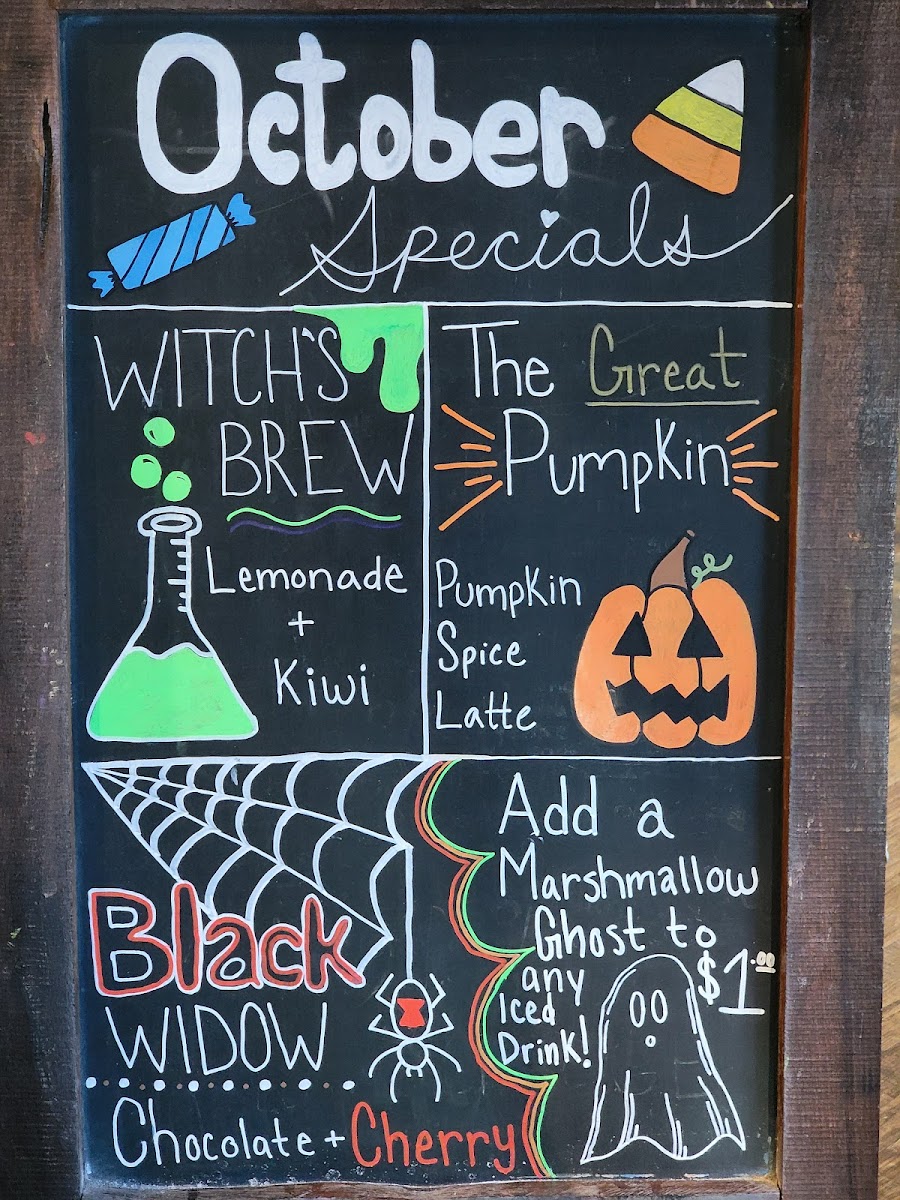 October
Specials
WITCH'S
BREW
Lemonade
+
Kiwi
The Great
Pumpkin
Pumpkin
Spice
Latte
Black
WIDOW
Chocolate + Cherry
Add a
Marshmallow
Ghost to
any
Iced
Drink!
$1.00